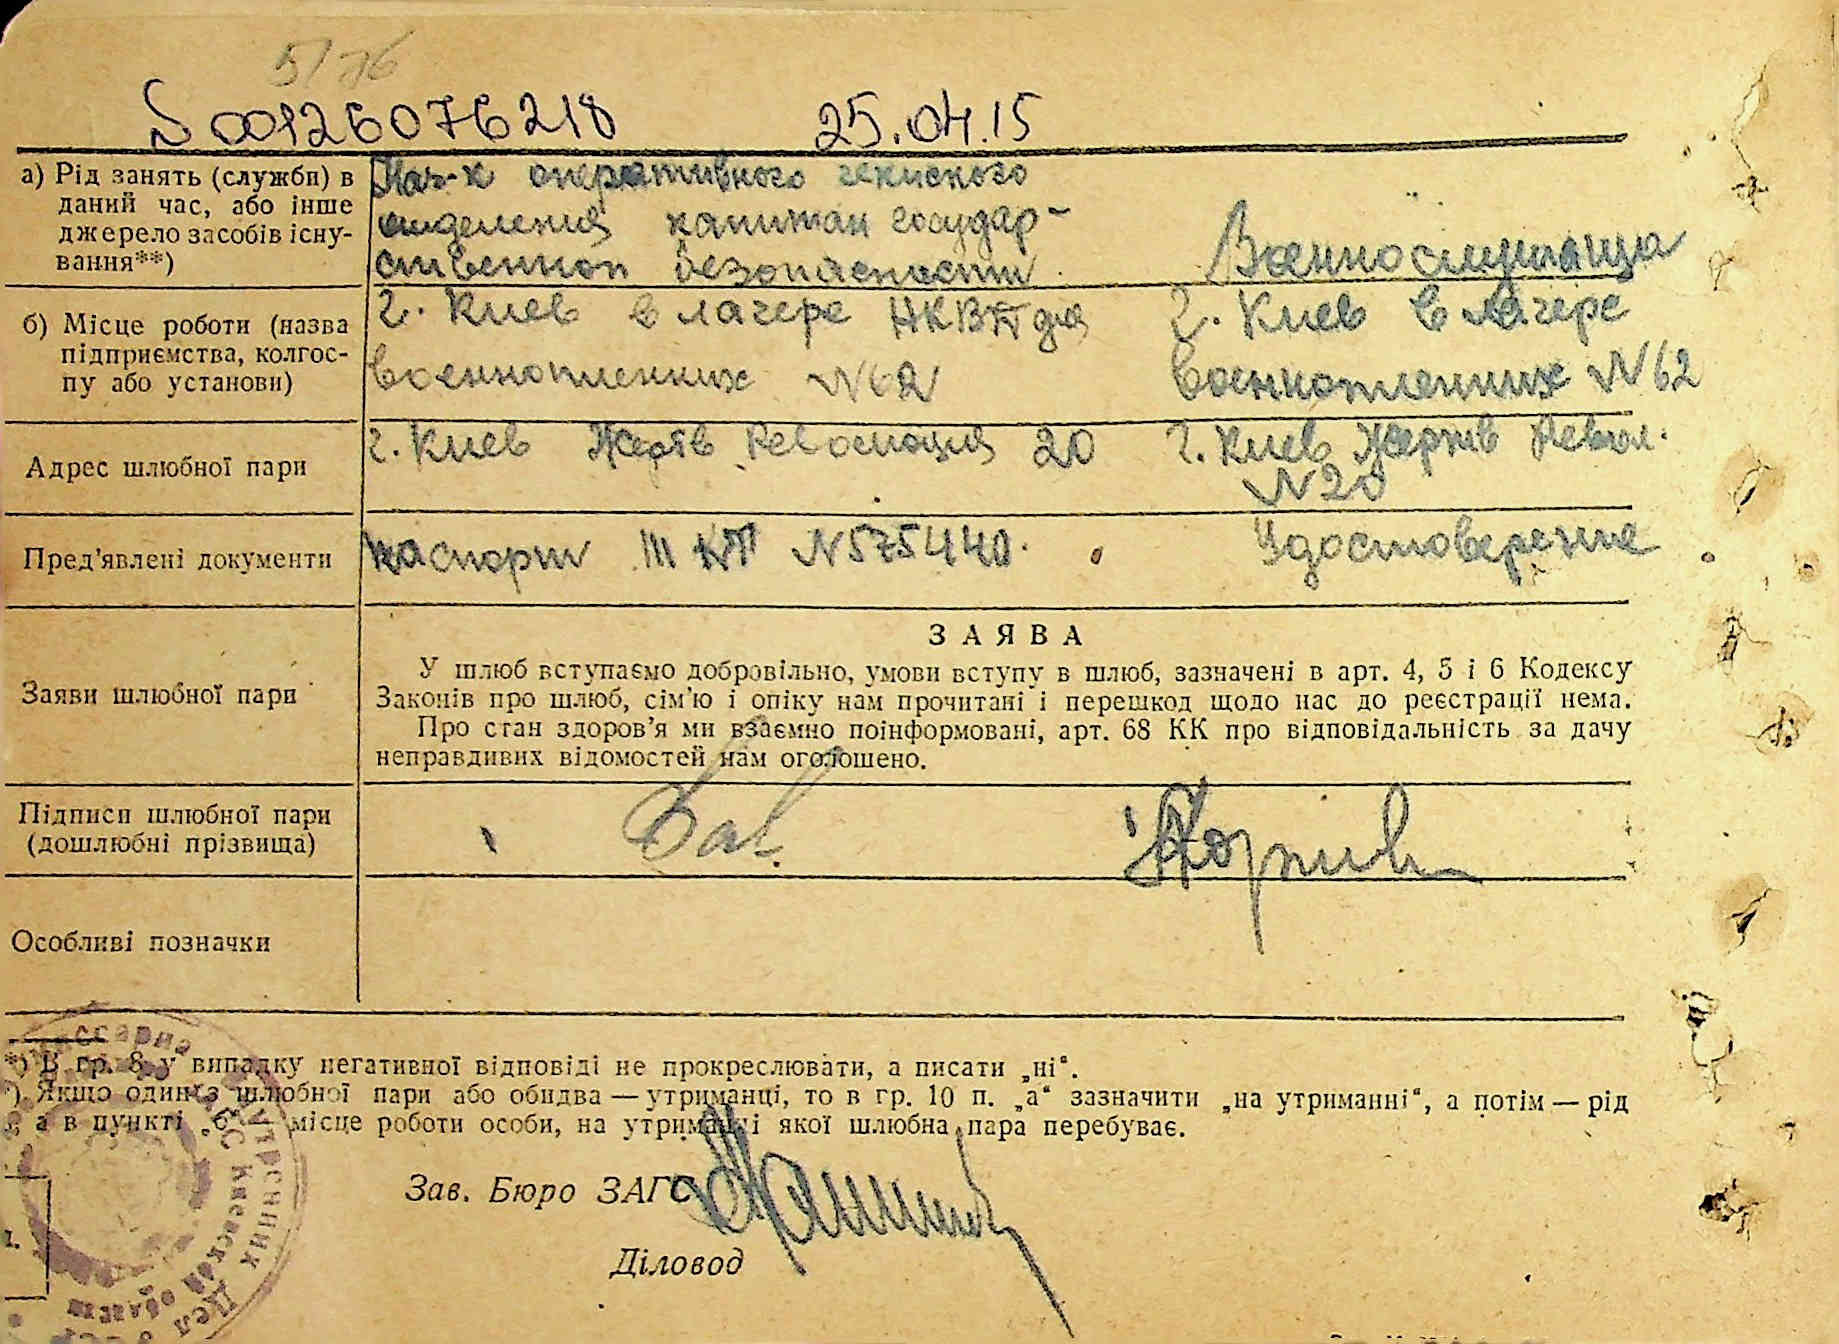 5/76
S00126076218 25.04.15
а) Рід занять (служби) в даний час, або інше джерело засобів існування**)
Нач-к оперативного чекиского
отделения капитан государ-
ственной безопасности
Военнослужаща
б) Місце роботи (назва
підприємства, колгос-
пу або установи)
г. Киев в лагере НКВД для
военнопленних №62
г. Киев в лагере
военнопленних №62
Адрес шлюбної пари
г. Киев Жертв Революция 20
г. Киев Жертв Револ.
№20
Пред'явлені документи
паспорт III КП №575440.
Удостоверение
Заяви шлюбної пари
ЗАЯВА
У шлюб вступаємо добровільно, умови вступу в шлюб, зазначені в арт. 4, 5 і 6 Кодексу
Законів про шлюб, сім'ю і опіку нам прочитані і перешкод щодо нас до реєстрації нема.
Про стан здоров'я ми взаємно поінформовані, арт. 68 КК про відповідальність за дачу
неправдивих відомостей нам оголошено.
Підписи шлюбної пари
(дошлюбні прізвища)
Особливі позначки
*) В гр. 8 у випадку негативної відповіді не прокреслювати, а писати „ні“.
*) Якщо один з шлюбної пари або обидва — утриманці, то в гр. 10 п. „а“ зазначити „на утриманні“, а потім — рід
а в пункті „б“ місце роботи особи, на утриманні якої шлюбна пара перебуває.
Зав. Бюро ЗАГС
Діловод